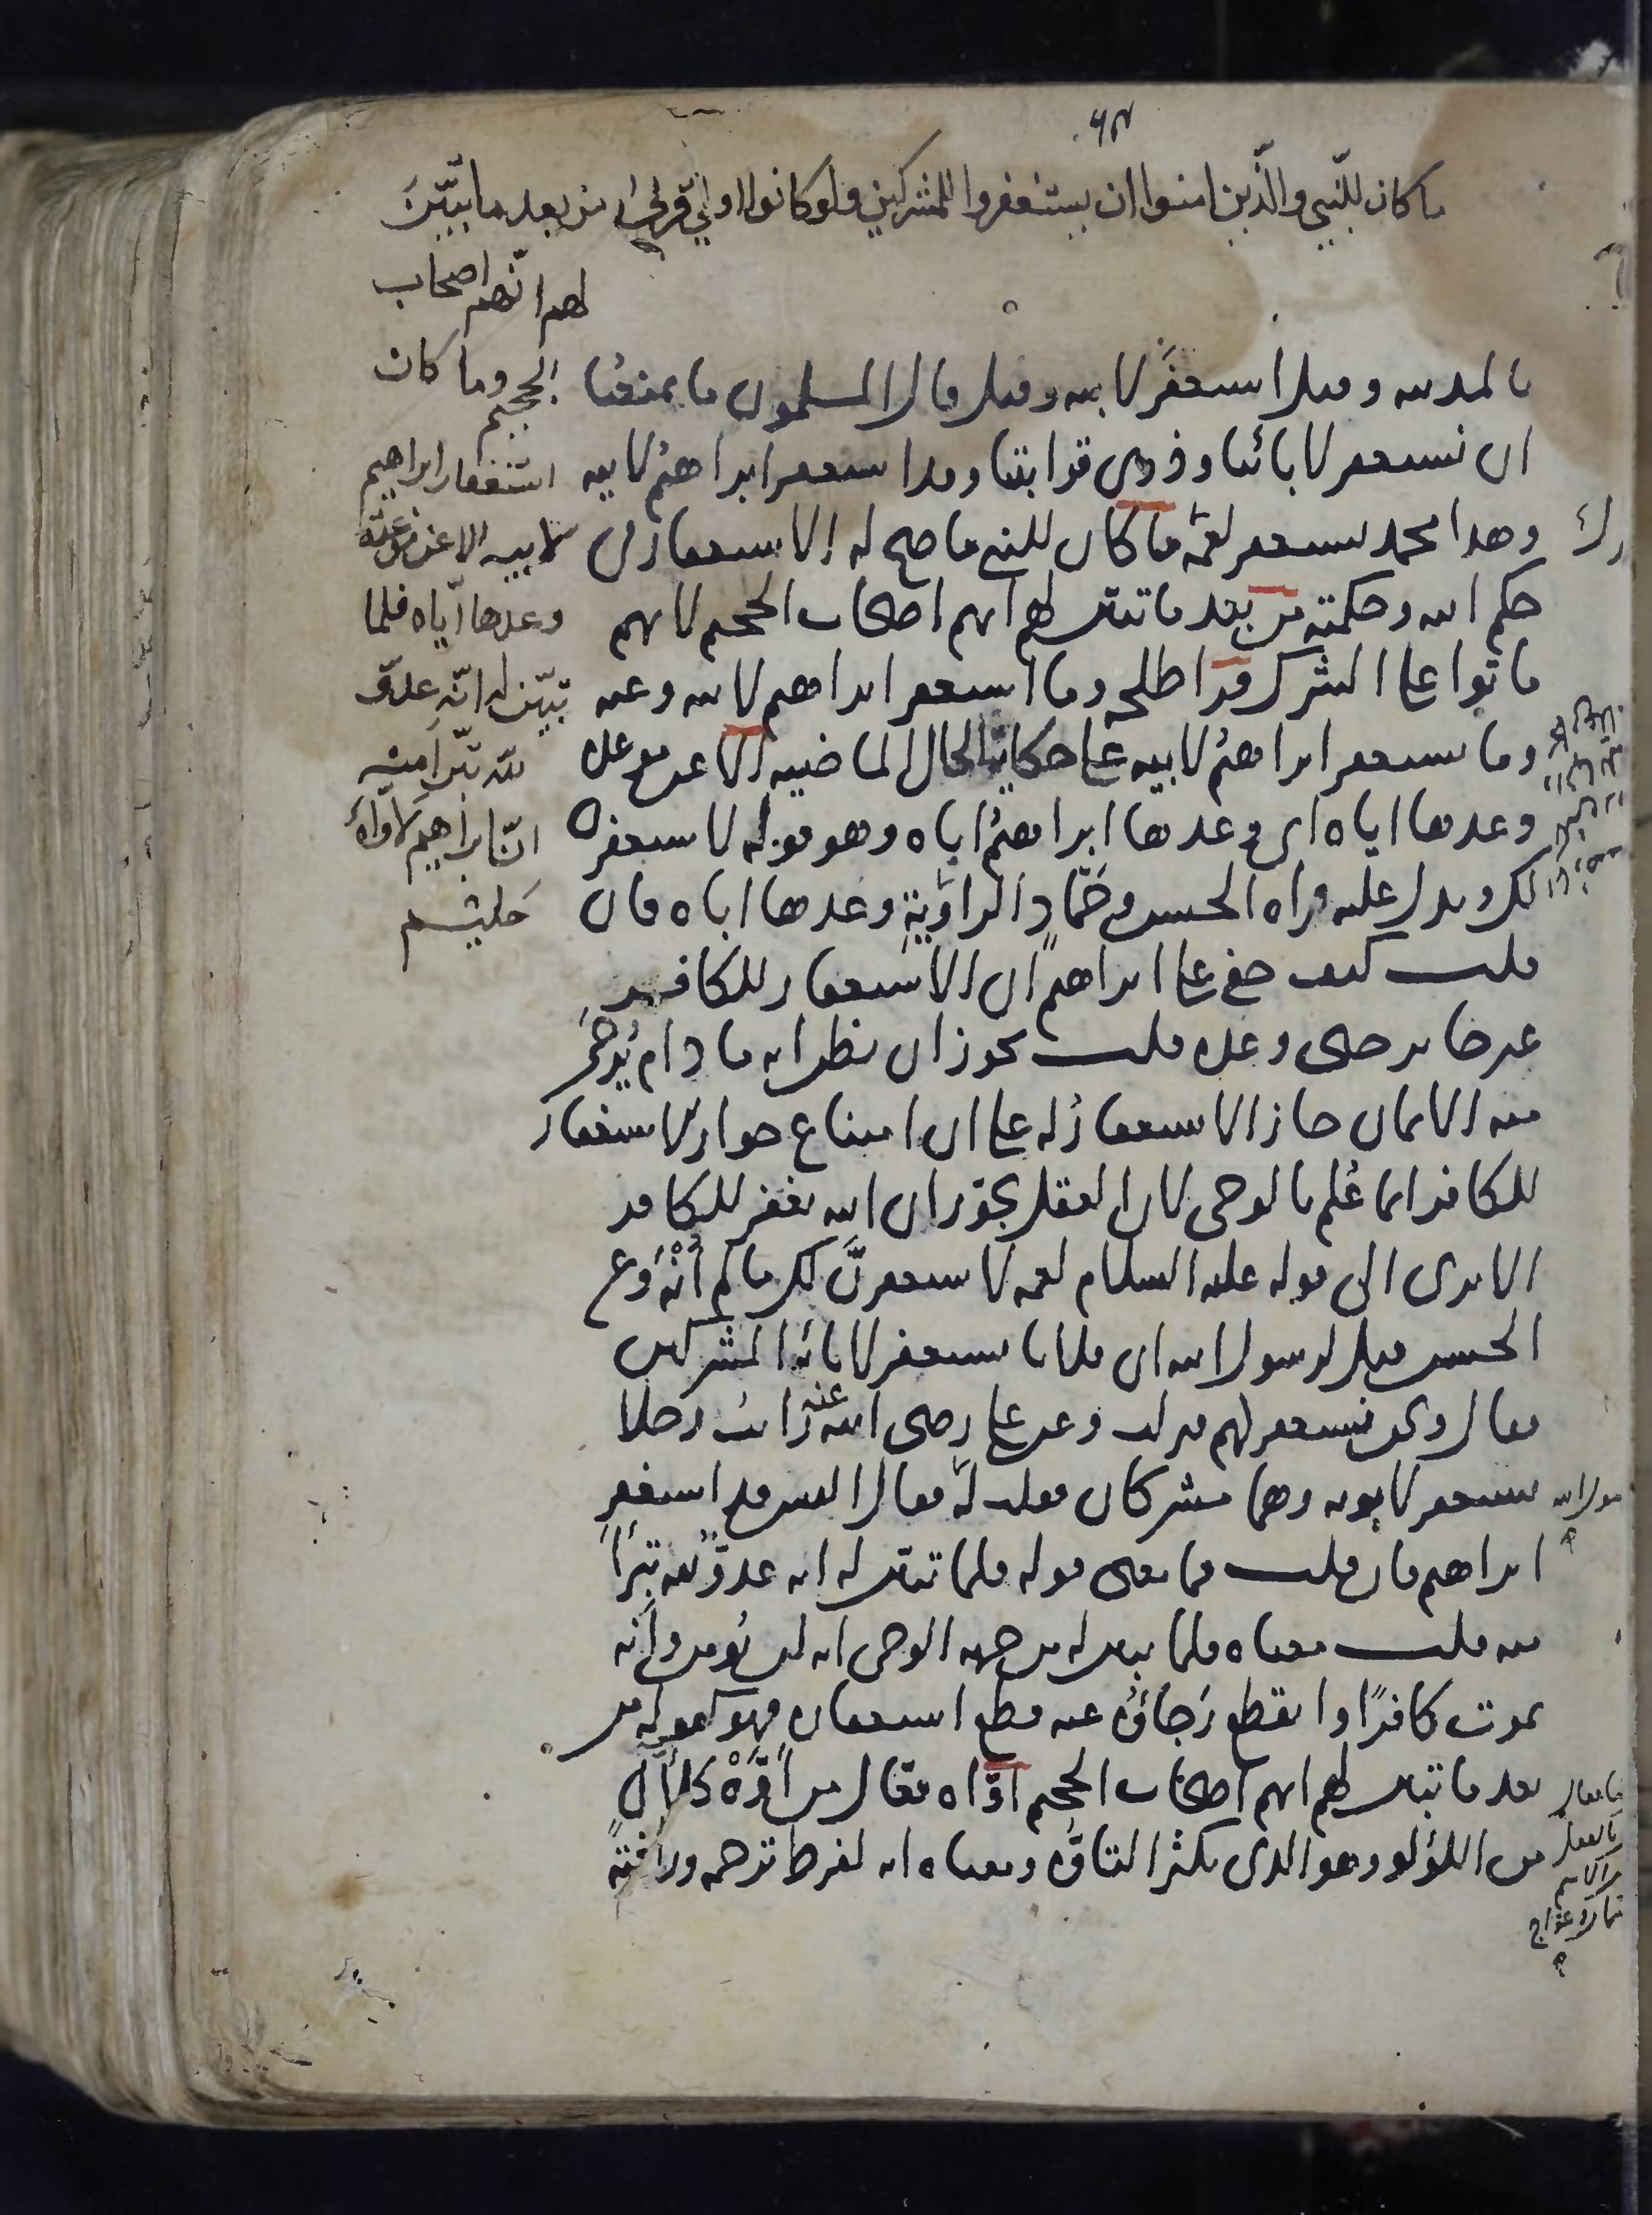 ما كان للنّبي والّذين امنوا ان يستغفروا للمشركين ولو كانوا اولي قربى من بعد ما تبيّن
لهم انّهم اصحاب
الجحيم وما كان
استغفار ابراهيم
لابيه الا عن موعدة
وعدها ايّاه فلما
تبيّن له انّه عدوّ
لله تبرّا منه
انّ ابراهيم لاوّاه
حليم
بالمدينه وقيل استغفر لابيه وقيل قال المسلمون ما يمنعنا
ان نستغفر لابائنا وذوي قرابتنا وقد استغفر ابراهيم لابيه
وهذا محمد يستغفر لعمّه ما كان للنبي ما صح له الاستغفار في
حكم الله وحكمته من بعد ما تبين لهم انهم اصحاب الجحيم لانهم
ماتوا على الشرك قرا طلحه وما استغفر ابراهيم لابيه وعنه
وما يستغفر ابراهيم لابيه على حكاية الحال الماضيه الا عن موعده
وعدها اياه اي وعدها ابراهيم اباه وهو قوله لاستغفرن
لك ويدل عليه قراه الحسن وحمّاد الراوية وعدها اباه فان
قلت كيف خفي على ابراهيم ان الاستغفار للكافر
غير جايز حتى وعده قلت يجوز ان يظن انه ما دام يُرجى
منه الايمان جاز الاستغفار له على ان امتناع جواز الاستغفار
للكافر انما عُلم بالوحي لان العقل يجوّز ان الله يغفر للكافر
الا ترى الى قوله عليه السلام لعمه لاستغفرنّ لك ما لم اُنْهَ وعن
الحسن قيل لرسول الله ان فلانا يستغفر لابائه المشركين
فقال ونحن نستغفر لهم فنزلت وعن علي رضي الله عنه رايت رجلا
يستغفر لابويه وهما مشركان فقلت له فقال اليس قد استغفر
ابراهيم فان قلت فما معنى قوله فلما تبين له انه عدوّ لله تبرّا
منه قلت معناه فلما تبين له من جهه الوحي انه لن يُومن وانه
يموت كافرًا وانقطع رَجاؤُه عنه قطع استغفاره فهو كقوله من
بعد ما تبين لهم انهم اصحاب الجحيم اوّاه فعّال من اَوَّهْ كلأال
من اللؤلو وهو الذي يكثر التاوّه ومعناه انه لفرط ترحمه ورافته